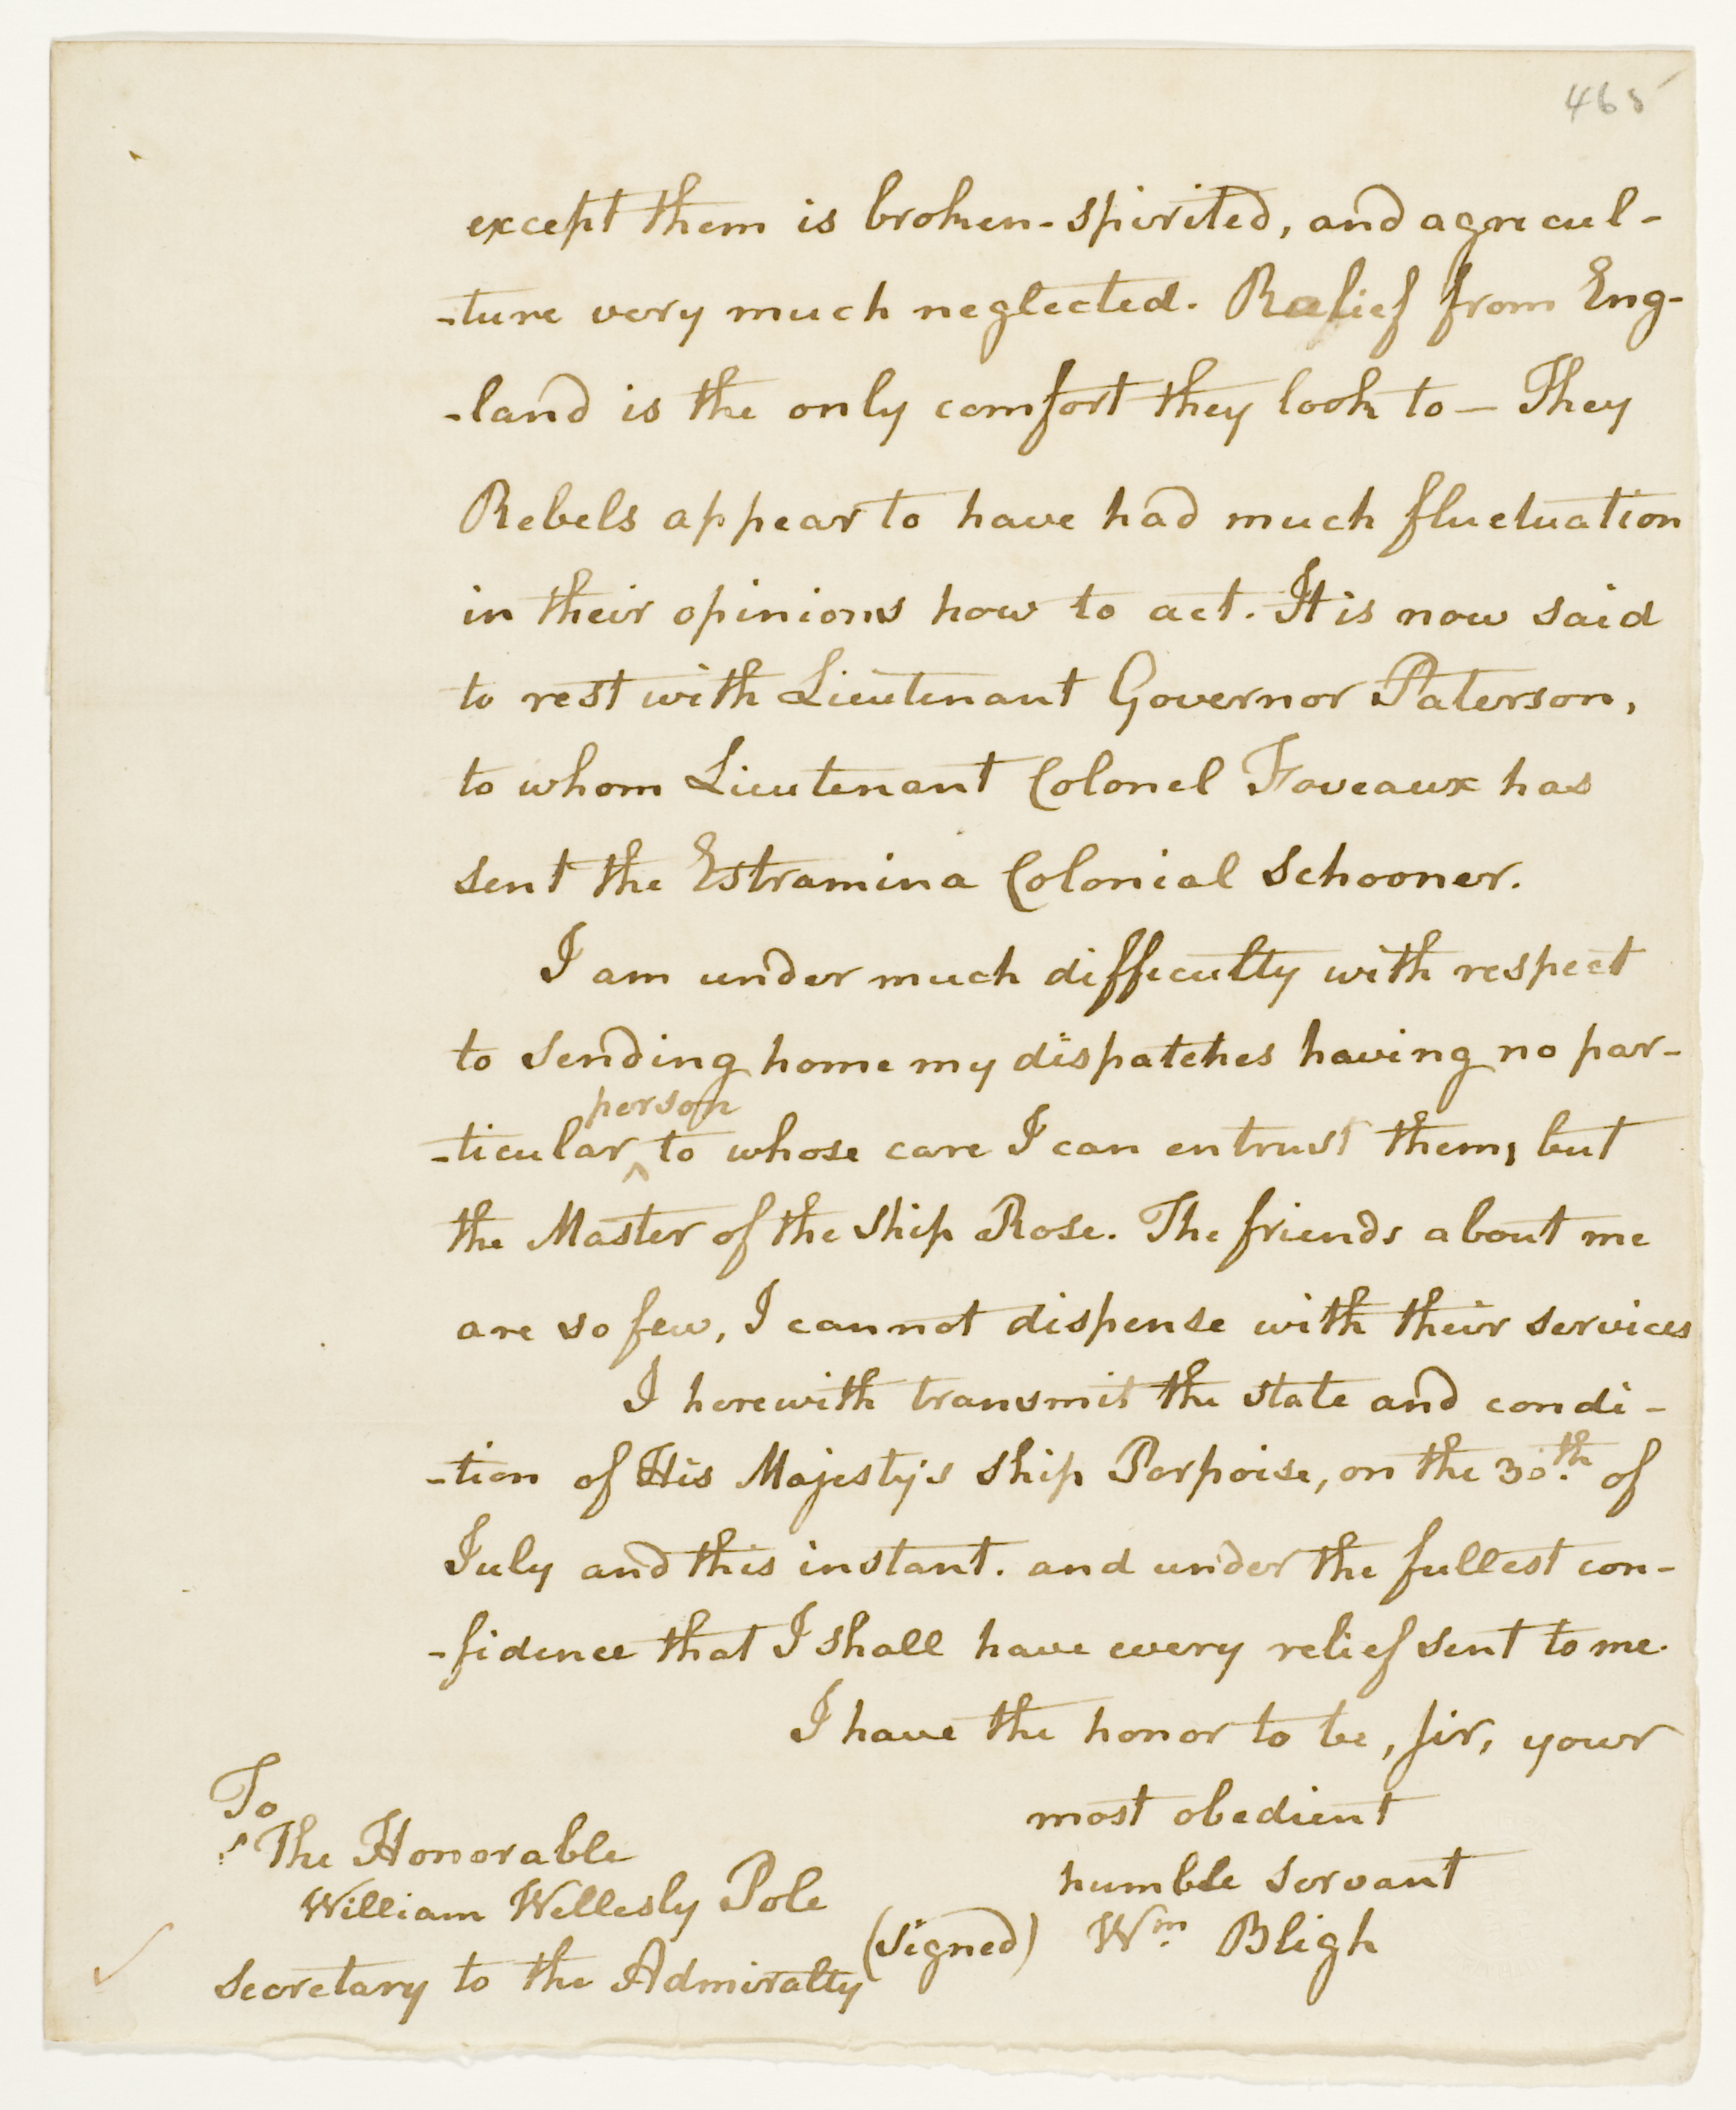 465
except them is broken-spirited, and agricul-
-ture very much neglected. Relief from Eng-
-land is the only comfort they look to — They
Rebels appear to have had much fluctuation
in their opinions how to act. It is now said
to rest with Lieutenant Governor Paterson,
to whom Lieutenant Colonel Foveaux has
sent the Estramina Colonial Schooner.
I am under much difficulty with respect
to sending home my dispatches having no par-
person
-ticular ^ to whose care I can entrust them, but
the Master of the Ship Rose. The friends about me
are so few, I cannot dispense with their services
I herewith transmit the state and condi-
-tion of His Majesty's Ship Porpoise, on the 30th. of
July and this instant. and under the fullest con-
-fidence that I shall have every relief sent to me.
I have the honor to be, Sir, your
most obedient
humble servant
(signed) Wm. Bligh
To
The Honorable
William Wellesly Pole
Secretary to the Admiralty